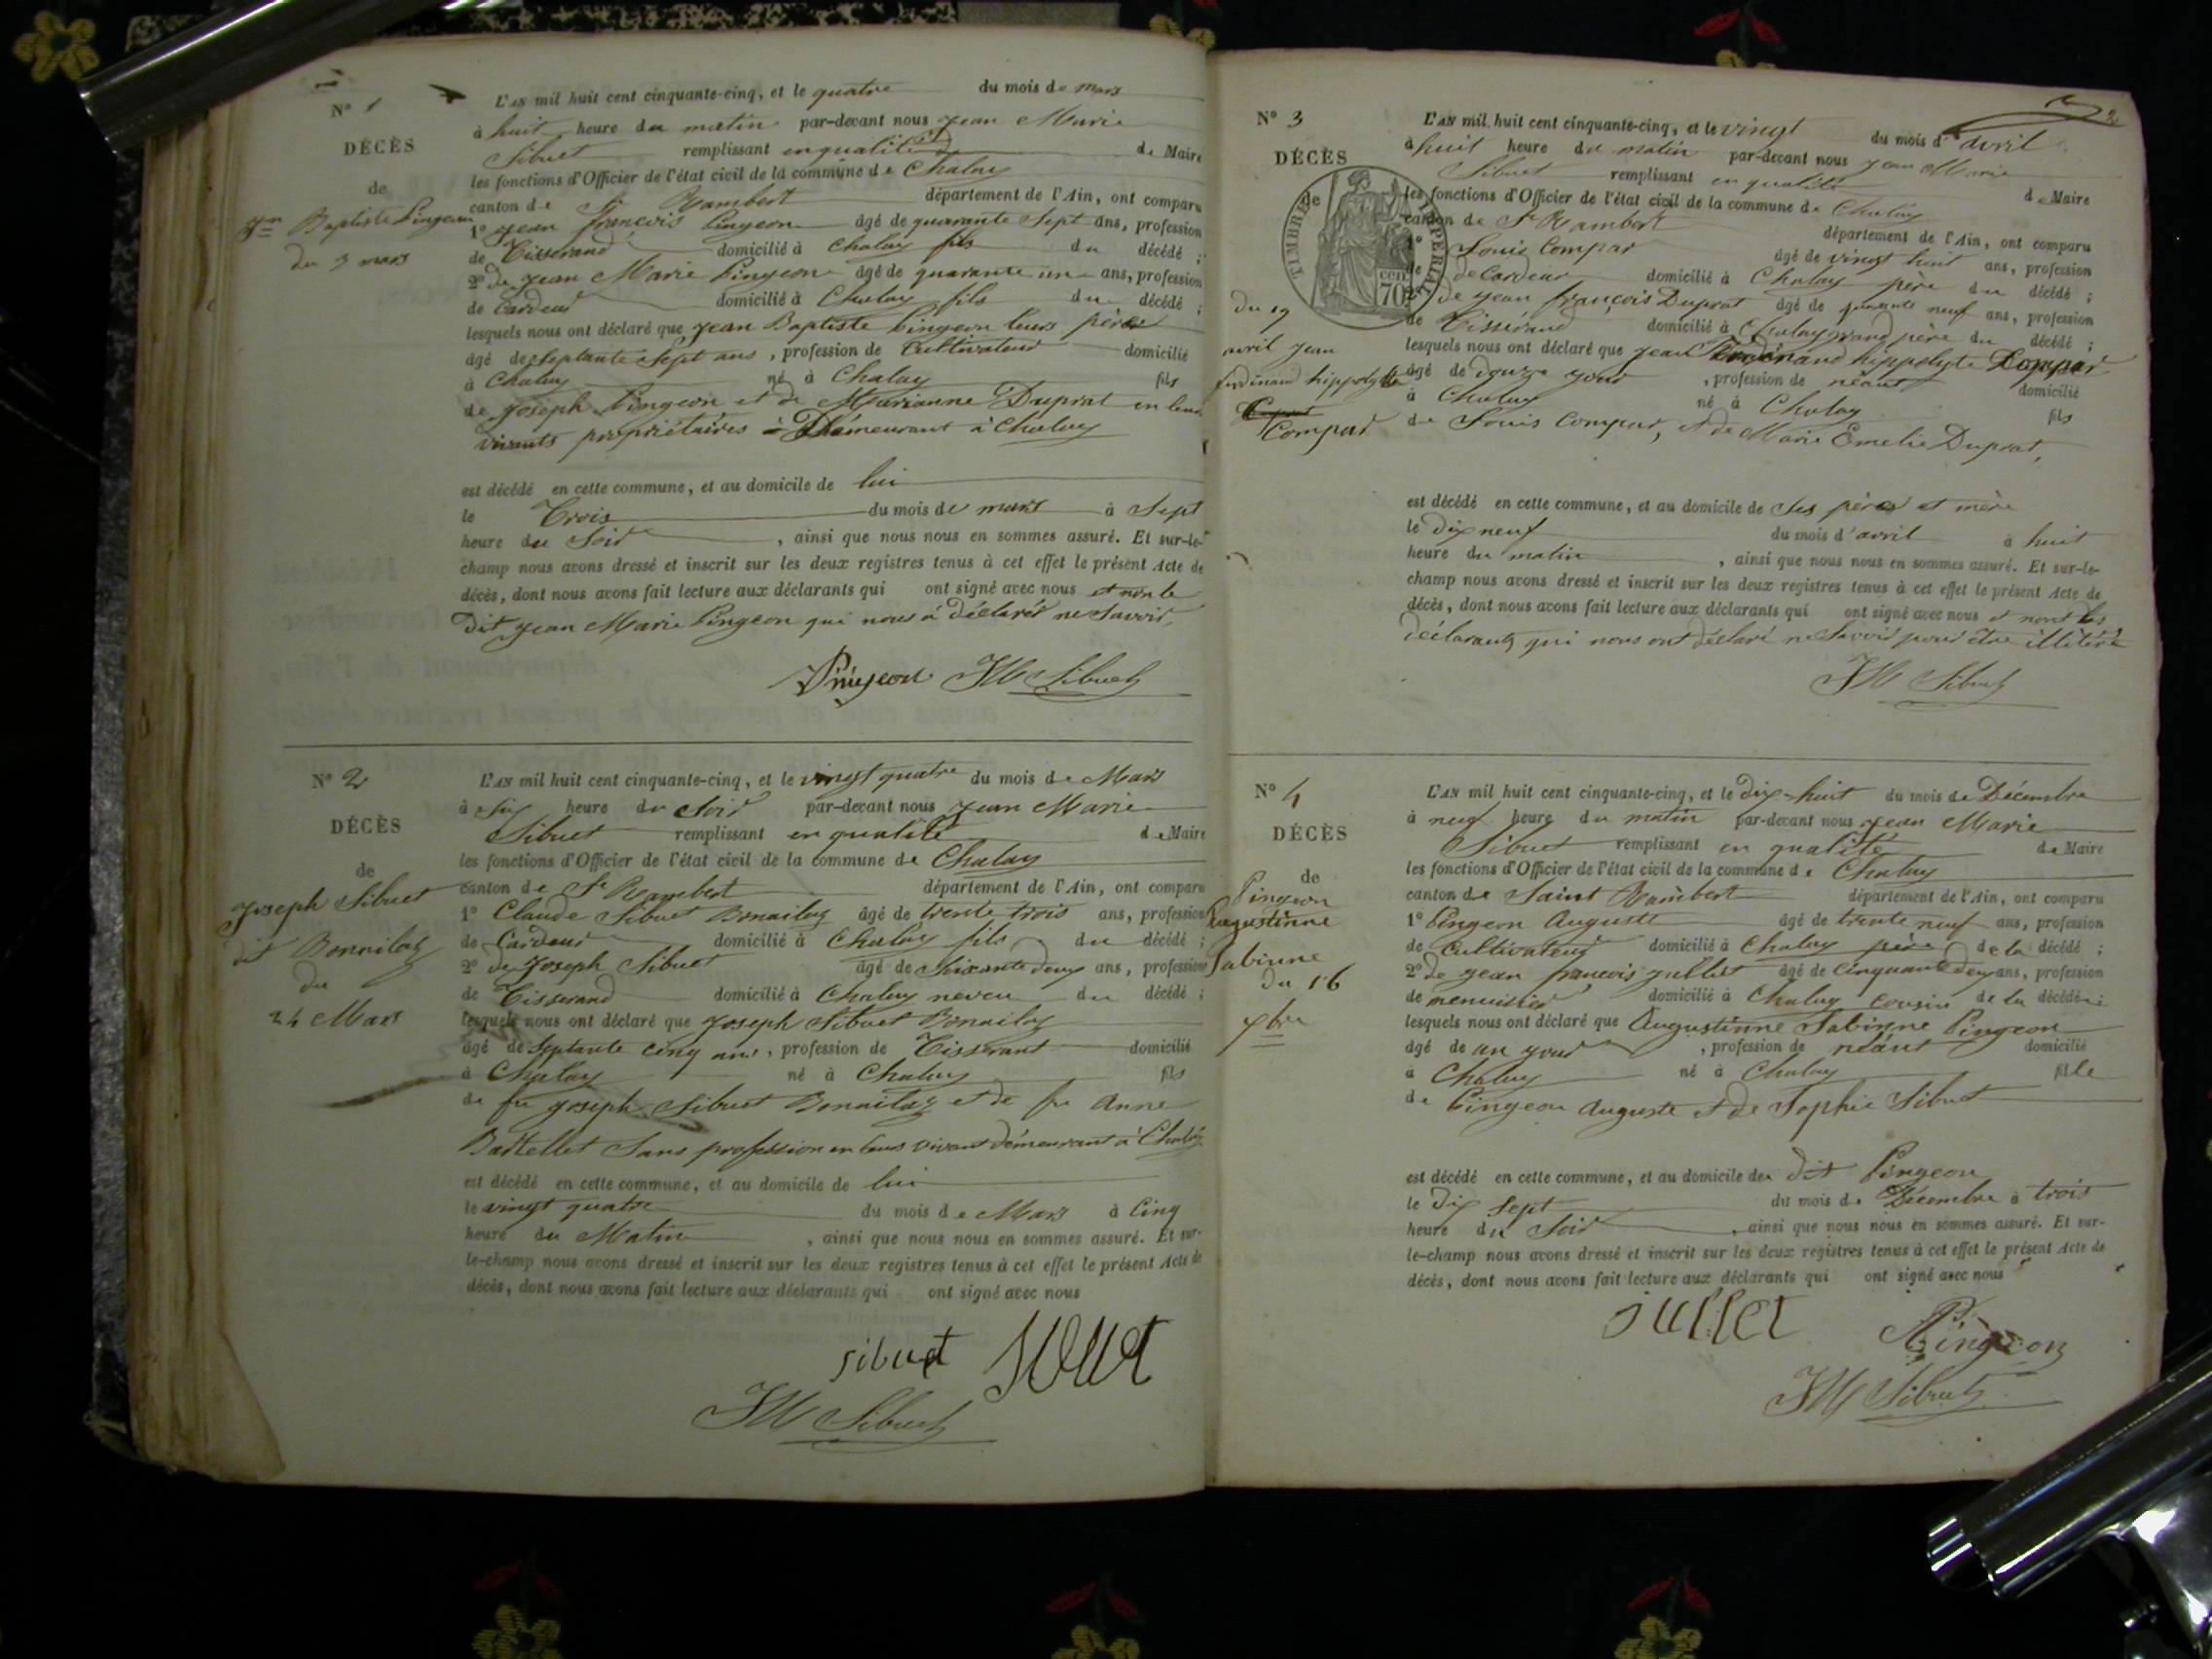 N° 1
DÉCÈS
de
Jn Baptiste Pingeon
du 3 mars
L'AN mil huit cent cinquante-cinq, et le quatre du mois de mars
à huit heure du matin par-devant nous Jean Marie
Sibuet remplissant en qualité de Maire
les fonctions d'Officier de l'état civil de la commune de Chaley
canton de St Rambert département de l'Ain, ont comparu
1° Jean françois Pingeon âgé de quarante Sept ans, profession
de Tisserand domicilié à Chaley fils du décédé ;
2° de Jean Marie Pingeon âgé de quarante un ans, profession
de Cardeur domicilié à Chaley fils du décédé ;
lesquels nous ont déclaré que Jean Baptiste Pingeon leurs père
âgé de Septante Sept ans, profession de Cultivateur domicilié
à Chaley né à Chaley fils
de Joseph Pingeon et de Marianne Duprat en leurs
vivants propriétaires Démeurant à Chaley
est décédé en cette commune, et au domicile de lui
le Trois du mois de mars à Sept
heure du Soir, ainsi que nous nous en sommes assuré. Et sur-le-
champ nous avons dressé et inscrit sur les deux registres tenus à cet effet le présent Acte de
décès, dont nous avons fait lecture aux déclarants qui ont signé avec nous et non le
Dit Jean Marie Pingeon qui nous à Déclaré ne Savoir,
Pingeon JM Sibuet
N° 2
DÉCÈS
de
Joseph Sibuet
dit Bonnilaz
du
24 Mars
L'AN mil huit cent cinquante-cinq, et le vingt quatre du mois de Mars
à Six heure du Soir par-devant nous Jean Marie
Sibuet remplissant en qualité de Maire
les fonctions d'Officier de l'état civil de la commune de Chaley
canton de St Rambert département de l'Ain, ont comparu
1° Claude Sibuet Bonnilaz âgé de trente trois ans, profession
de Cardeur domicilié à Chaley fils du décédé ;
2° de Joseph Sibuet âgé de Soixante deux ans, profession
de Tisserand domicilié à Chaley neveu du décédé ;
lesquels nous ont déclaré que Joseph Sibuet Bonnilaz
âgé de Septante cinq ans, profession de Tisserant domicilié
à Chaley né à Chaley fils
de fu Joseph Sibuet Bonnilaz et de fu Anne
Bartellet Sans profession en leurs vivant démeurant à Chaley
est décédé en cette commune, et au domicile de lui
le vingt quatre du mois de Mars à Cinq
heure du Matin, ainsi que nous nous en sommes assuré. Et sur-
le-champ nous avons dressé et inscrit sur les deux registres tenus à cet effet le présent Acte de
décès, dont nous avons fait lecture aux déclarants qui ont signé avec nous
sibuet
JM Sibuet
2
N° 3
DÉCÈS
de
TIMBRE IMPÉRIAL
70 cen
du 19
avril Jean
ferdinand hippolyte
Compar
L'AN mil huit cent cinquante-cinq, et le vingt du mois d'avril
à huit heure du matin par-devant nous Jean Marie
Sibuet remplissant en qualité de Maire
les fonctions d'Officier de l'état civil de la commune de Chaley
canton de St Rambert département de l'Ain, ont comparu
1° Louis Compar âgé de vingt huit ans, profession
de Cardeur domicilié à Chaley père du décédé ;
2° de Jean françois Duprat âgé de quarante neuf ans, profession
de Tisserand domicilié à Chaley grand père du décédé ;
lesquels nous ont déclaré que Jean Ferdinand hippolyte Compar
âgé de douze jour, profession de néant domicilié
à Chaley né à Chaley fils
de Louis Compar, et de Marie Emelie Duprat,
est décédé en cette commune, et au domicile de Ses père et mère
le Dix neuf du mois d'avril à huit
heure du matin, ainsi que nous nous en sommes assuré. Et sur-le-
champ nous avons dressé et inscrit sur les deux registres tenus à cet effet le présent Acte de
décès, dont nous avons fait lecture aux déclarants qui ont signé avec nous et nont les
déclarants qui nous ont déclaré ne Savoir pour être illitéré
JM Sibuet
N° 4
DÉCÈS
de
Pingeon
Augustinne
Sabinne
du 16
xbre
L'AN mil huit cent cinquante-cinq, et le Dix-huit du mois de Décembre
à neuf heure du matin par-devant nous Jean Marie
Sibuet remplissant en qualité de Maire
les fonctions d'Officier de l'état civil de la commune de Chaley
canton de Saint Rambert département de l'Ain, ont comparu
1° Pingeon Auguste âgé de trente neuf ans, profession
de Cultivateur domicilié à Chaley père de la décédé ;
2° de Jean françois Jullet âgé de Cinquante deux ans, profession
de menuisier domicilié à Chaley Cousin de la décédée ;
lesquels nous ont déclaré que Augustinne Sabinne Pingeon
âgé de un jour, profession de néant domicilié
à Chaley né à Chaley fille
de Pingeon Auguste et de Sophie Sibuet
est décédé en cette commune, et au domicile de dit Pingeon
le Dix Sept du mois de Décembre à trois
heure du Soir, ainsi que nous nous en sommes assuré. Et sur-
le-champ nous avons dressé et inscrit sur les deux registres tenus à cet effet le présent Acte de
décès, dont nous avons fait lecture aux déclarants qui ont signé avec nous
jullet Pingeon
JM Sibuet